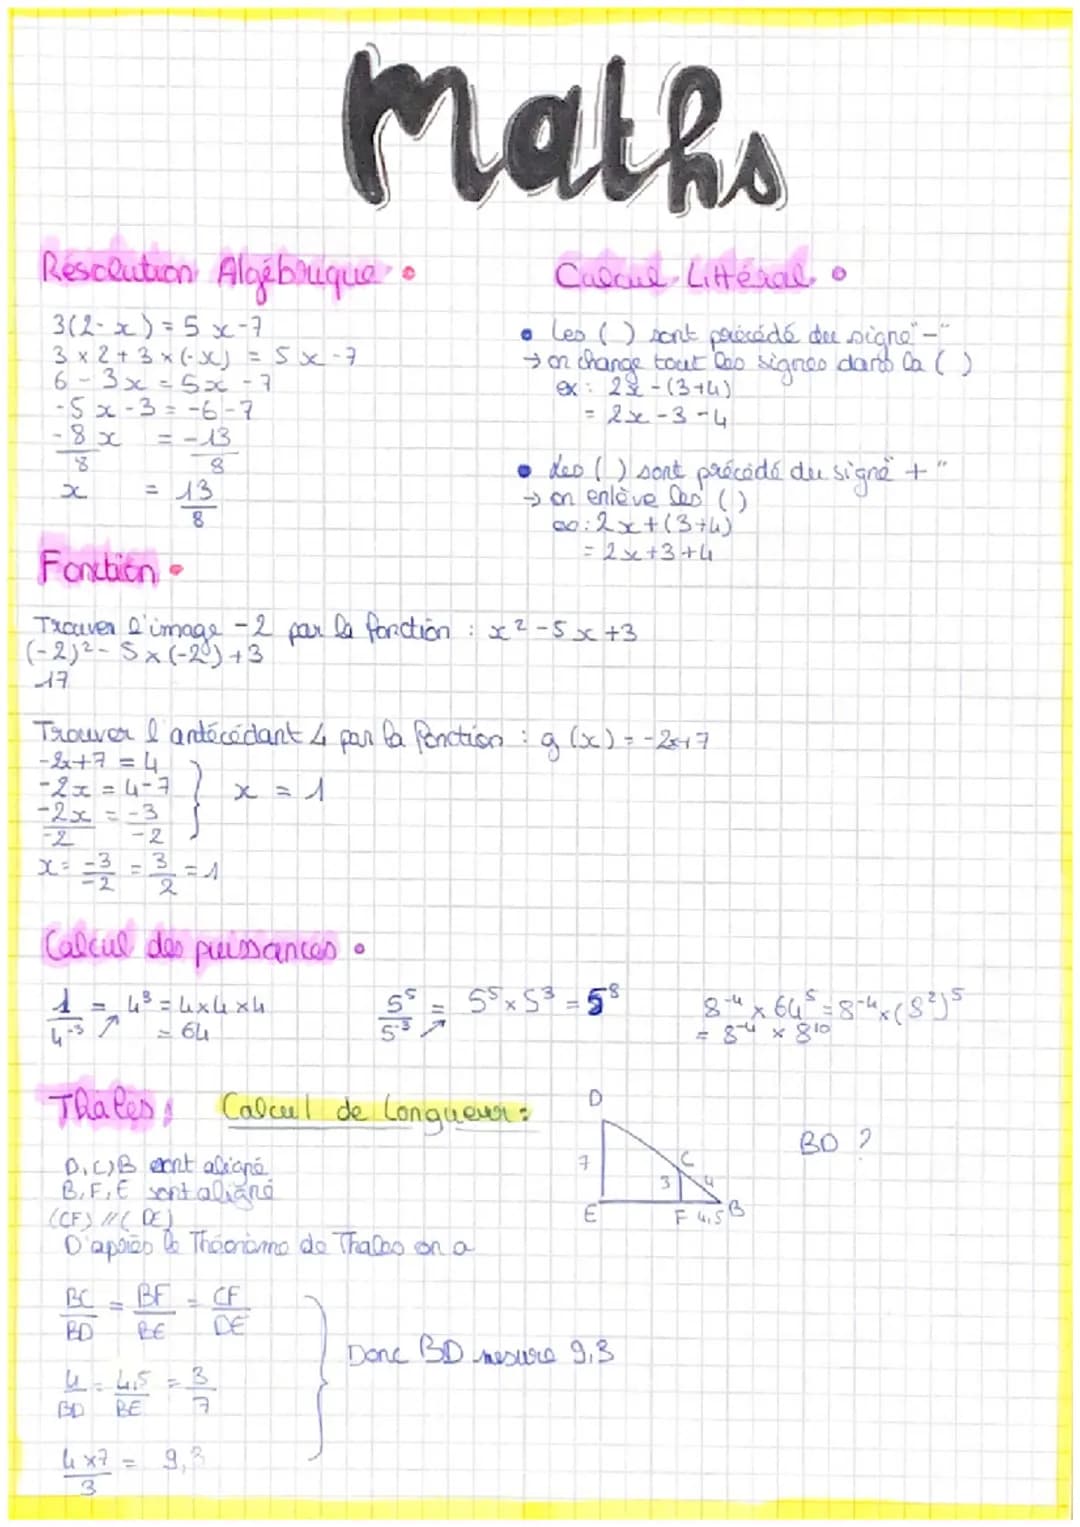 Maths
Résolution Algébrique
3(2-x) = 5x-7
3 x 2 + 3 x (-x) = 5x -7
6 - 3x = 5x - 7
-5x - 3 = -6 - 7
-8x/8 = -13/8
x = 13/8
Calcul Littéral
• Les ( ) sont précédé du signe "-"
→ on change tout les signes dans la ( )
ex: 2x - (3+4)
= 2x - 3 - 4
• des ( ) sont précédé du signe "+"
→ on enlève les ( )
2x + (3+4)
= 2x+3+4
Fonction
Trouver l'image -2 par la fonction : x² - 5x + 3
(-2)² - 5 x (-2) + 3
17
Trouver l'antécédant 4 par la fonction : g(x) = -2x+7
-2x+7 = 4
-2x = 4-7
-2x/-2 = -3/-2
x = 1
x = -3/-2 = 3/2 = 1
Calcul des puissances
1/4⁻³ = 4³ = 4x4x4
= 64
5⁵/5⁻³ = 5⁵ x 5³ = 5⁸
8⁻⁴ x 64⁵ = 8⁻⁴ x (8²)⁵
= 8⁻⁴ x 8¹⁰
Thalès : Calcul de longueur :
D, C, B sont aligné
B, F, E sont aligné
(CF) // (DE)
D'après le Théorème de Thalès on a
D
7
C
3
4
E
F 4,5 B
BD ?
BC/BD = BF/BE = CF/DE
4/BD = 4,5/BE = 3/7
4x7/3 = 9,3
Donc BD mesure 9,3